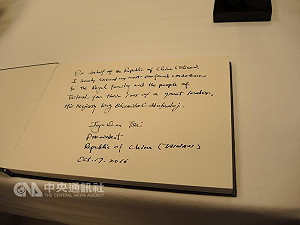 On behalf of the Republic of China (Taiwan),
I hereby extend my most profound condolences
to the Royal Family and the people of
Thailand for their loss of a great leader,
His Majesty King Bhumibol Adulyadej.
Tsai
President
Republic of China (Taiwan)
Oct. 17. 2016
CNA 中央通訊社
THE CENTRAL NEWS AGENCY